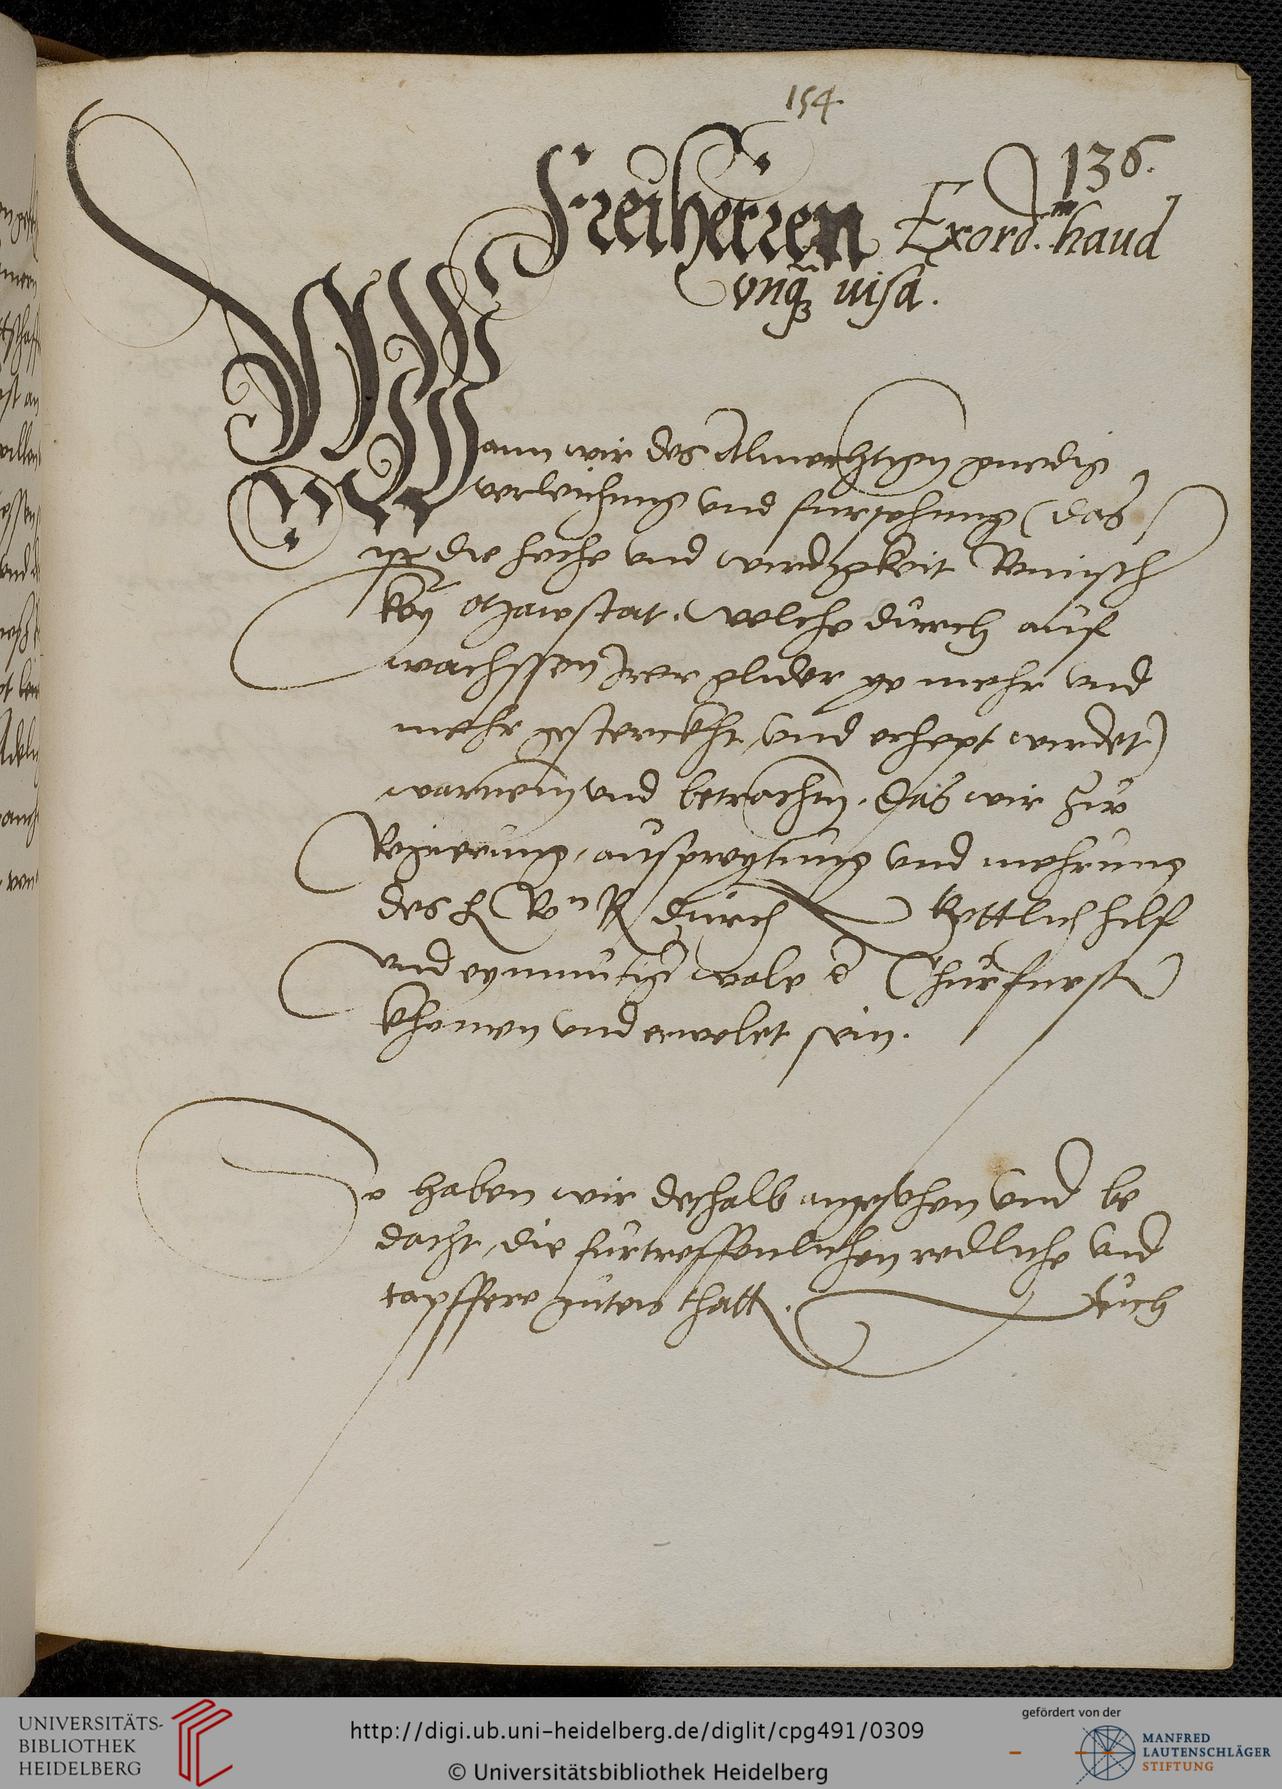 154.
136.
Freiherren Exord.m haud
vnq̃ꝫ uisa.
Wann wir des Almechtigen gnedig
verleichung vnd fursehung (das
die hoche vnd wirdigkeit Romisch
kön Maiestat. welche durch auf
wachssen Irer glider ye mehr vnd
mehr gesterckht, vnd erhept wirdet)
warnemen vnd betrachten. das wir zur
Regierung, auspreytung vnd mehrung
des H Ro R durch Gottlich hilf
vnd eynmutige wale d Churfurst
khomen vnd erwelet sein.
So haben wir deshalb angesehen vnd be
dacht, die furtreffenlichen redliche vnd
tapffere guten thatt. Euch
UNIVERSITÄTS-
BIBLIOTHEK
HEIDELBERG
http://digi.ub.uni-heidelberg.de/diglit/cpg491/0309
© Universitätsbibliothek Heidelberg
gefördert von der
MANFRED
LAUTENSCHLÄGER
STIFTUNG